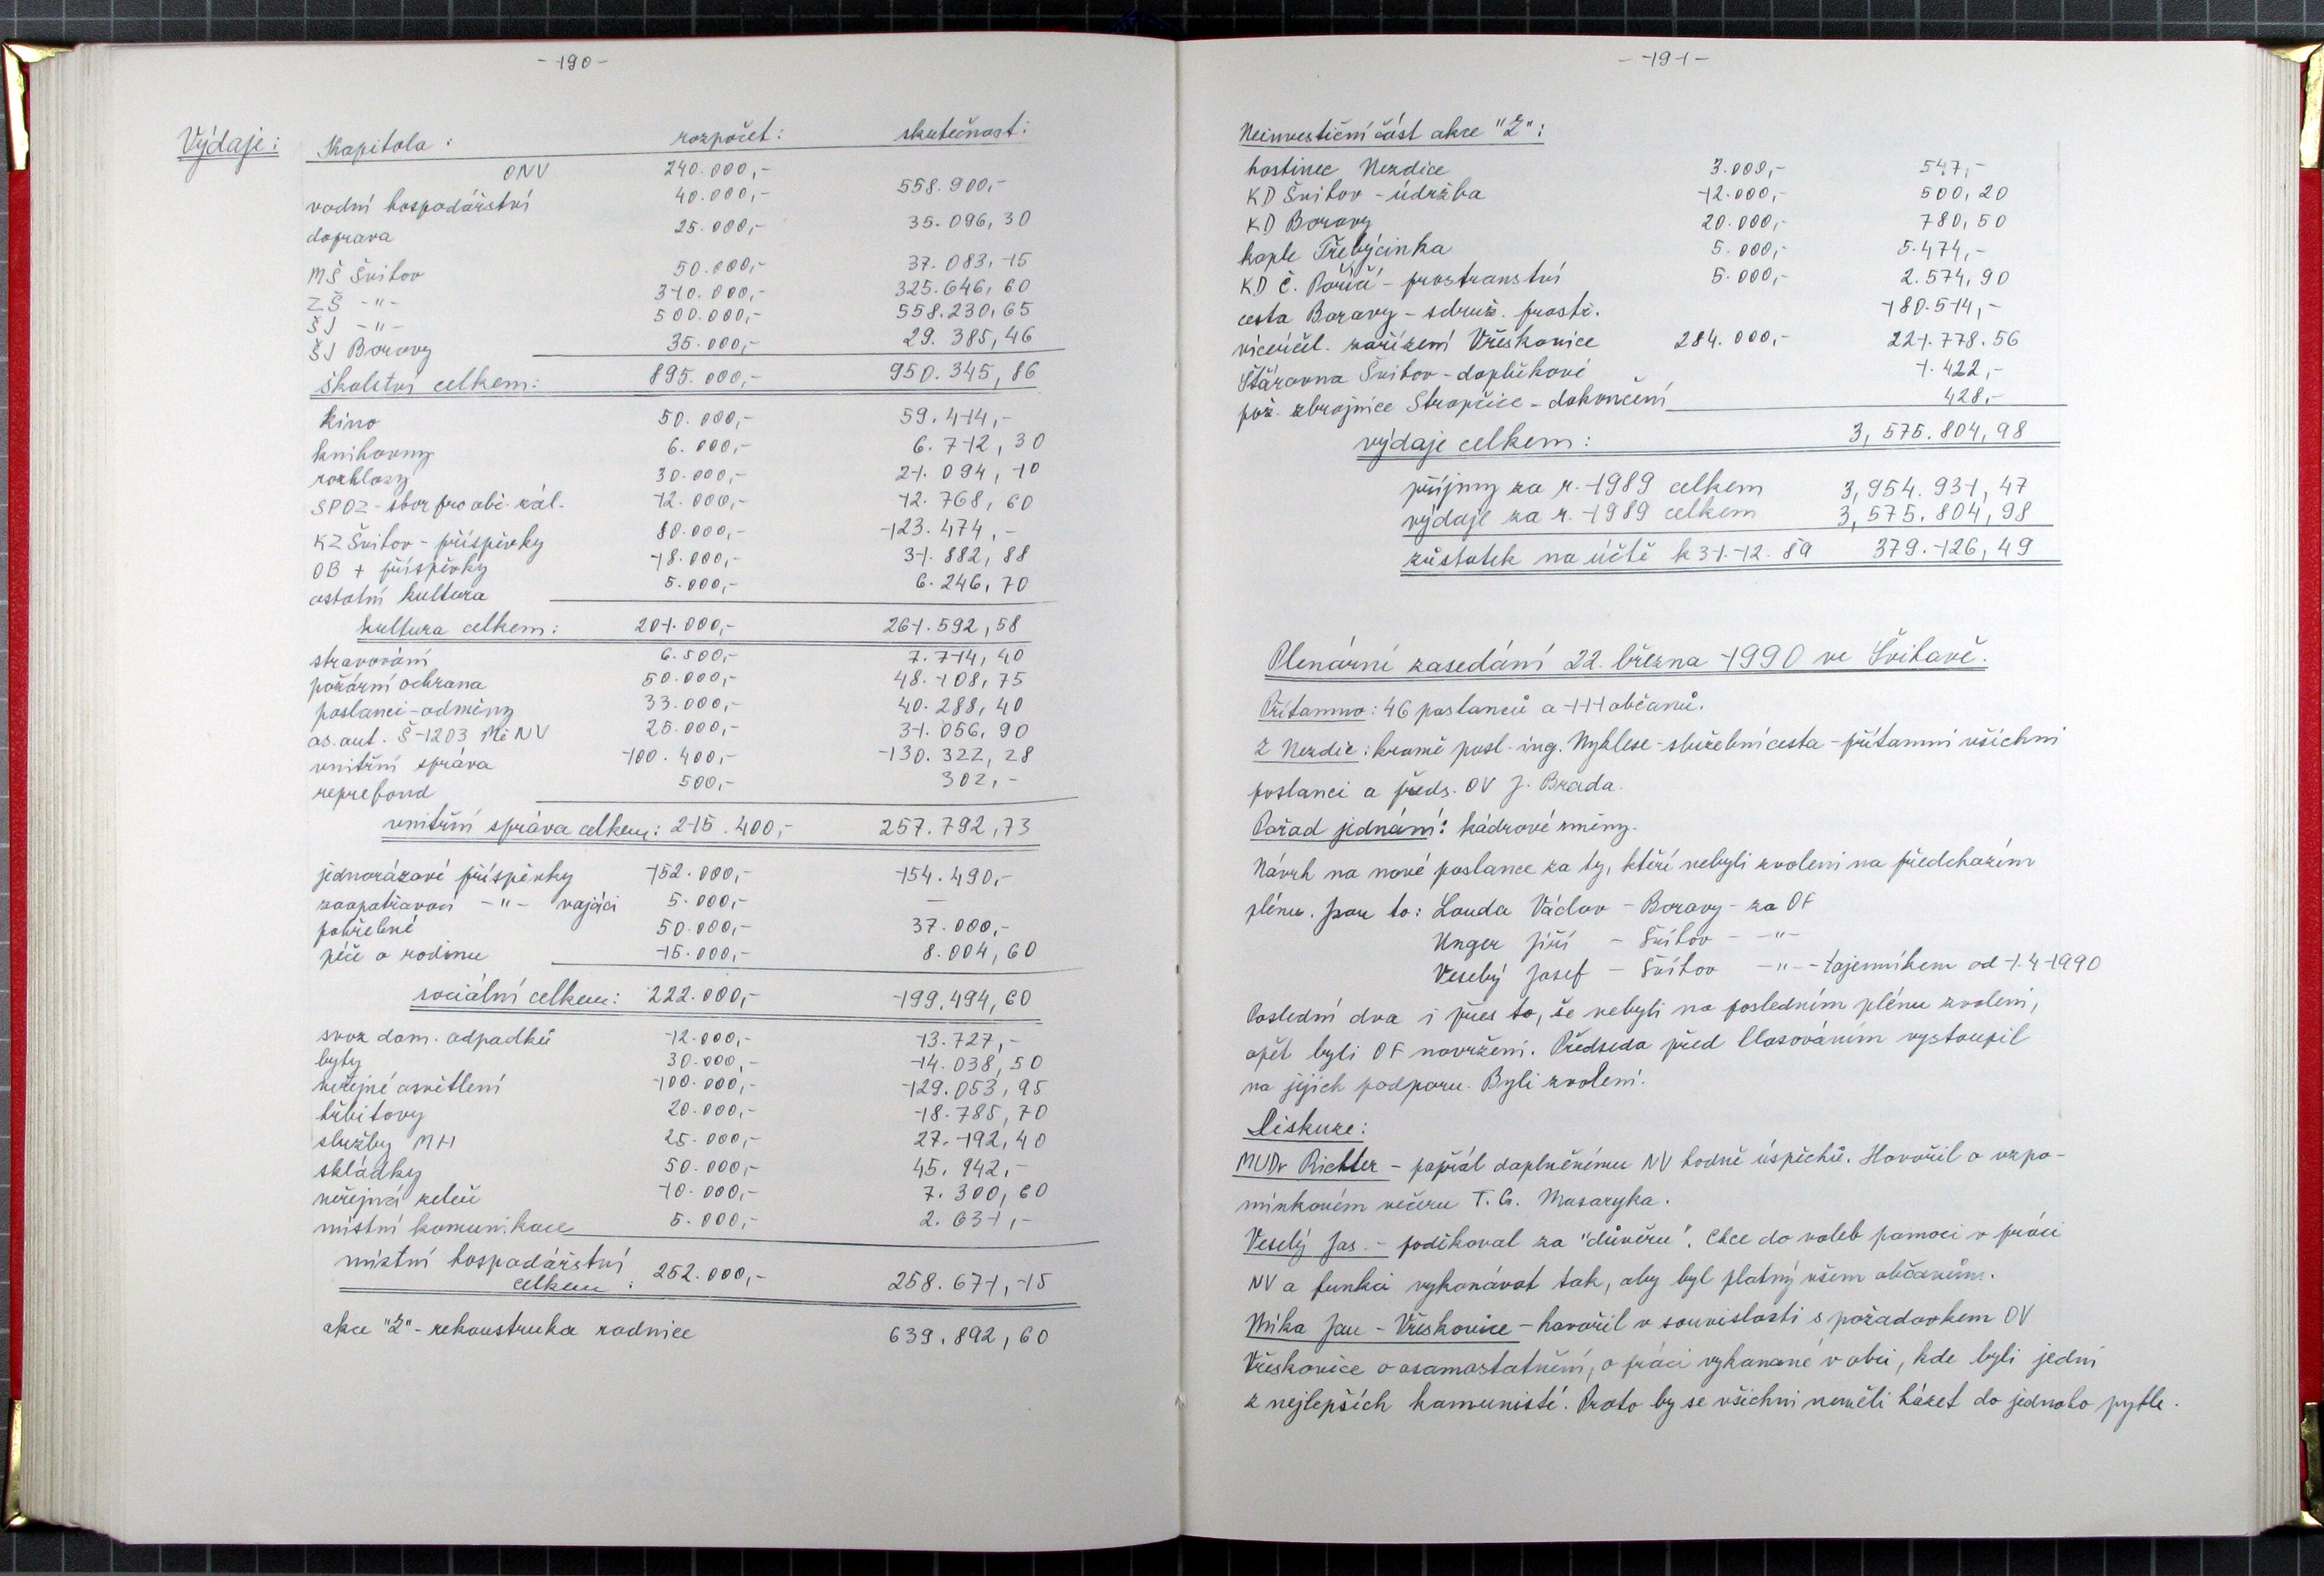 -190-
Výdaje: Kapitola: rozpočet: skutečnost:
ONV 240.000,-
vodní hospodářství 40.000,- 558.900,-
doprava 25.000,- 35.096,30
MŠ Švihov 50.000,- 37.083,15
ZŠ -"- 310.000,- 325.646,60
ŠJ -"- 500.000,- 558.230,65
ŠJ Borovy 35.000,- 29.385,46
školství celkem: 895.000,- 950.345,86
kino 50.000,- 59.414,-
knihovny 6.000,- 6.712,30
rozhlasy 30.000,- 21.094,10
SPOZ - sbor pro obč. zál. 12.000,- 12.768,60
KZ Švihov - příspěvky 80.000,- 123.474,-
OB + příspěvky 18.000,- 31.882,88
ostatní kultura 5.000,- 6.246,70
kultura celkem: 201.000,- 261.592,58
stravování 6.500,- 7.714,40
požární ochrana 50.000,- 48.108,75
poslanci - odměny 33.000,- 40.288,40
os. aut. Š-1203 MěNV 25.000,- 31.056,90
vnitřní správa 100.400,- 130.322,28
reprefond 500,- 302,-
vnitřní správa celkem: 215.400,- 257.792,73
jednorázové příspěvky 152.000,- 154.490,-
zaopatřovací -"- vojáci 5.000,- -
pohřebné 50.000,- 37.000,-
péče o rodinu 15.000,- 8.004,60
sociální celkem: 222.000,- 199.494,60
svoz dom. odpadků 12.000,- 13.727,-
byty 30.000,- 14.038,50
veřejné osvětlení 100.000,- 129.053,95
hřbitovy 20.000,- 18.785,70
služby MH 25.000,- 27.192,40
skládky 50.000,- 45.942,-
veřejná zeleň 10.000,- 7.300,60
místní komunikace 5.000,- 2.631,-
místní hospodářství
celkem: 252.000,- 258.671,15
akce "Z" - rekonstrukce radnice 639.892,60
-191-
Neinvestiční část akce "Z":
hostinec Nezdice 3.000,- 547,-
KD Švihov - údržba 12.000,- 500,20
KD Borovy 20.000,- 780,50
kaple Třebýcinka 5.000,- 5.474,-
KD Č. Poříčí - prostranství 5.000,- 2.574,90
cesta Borovy - sdruž. prostř. 180.514,-
víceúčel. zařízení Vřeskovice 284.000,- 221.778.56
Stářovna Švihov - doplňkové 1.422,-
pož. zbrojnice Stropčice - dokončení 428,-
výdaje celkem: 3,575.804,98
příjmy za r. 1989 celkem 3,954.931,47
výdaje za r. 1989 celkem 3,575.804,98
zůstatek na účtě k 31.12.89 379.126,49
Plenární zasedání 22. března 1990 ve Švihově.
Přítomno: 46 poslanců a 111 občanů.
Z Nezdic: kromě posl. ing. Nyklese - služební cesta - přítomni všichni
poslanci a předs. OV J. Brada.
Pořad jednání: kádrové změny.
Návrh na nové poslance za ty, kteří nebyli zvoleni na předchozím
plénu. Jsou to: Louda Václav - Borovy - za OF
Unger Jiří - Švihov - -"-
Veselý Josef - Švihov -"- - tajemníkem od 1.4.1990
Poslední dva i přes to, že nebyli na posledním plénu zvoleni,
opět byli OF navrženi. Předseda před hlasováním vystoupil
na jejich podporu. Byli zvoleni.
Diskuze:
MUDr Richter - popřál doplněnému NV hodně úspěchů. Hovořil o vzpo-
mínkovém večeru T. G. Masaryka.
Veselý Jos. - poděkoval za "důvěru". Chce do voleb pomoci v práci
NV a funkci vykonávat tak, aby byl platný všem občanům.
Mika Jan - Vřeskovice - hovořil v souvislosti s požadavkem OV
Vřeskovice o osamostatnění, o práci vykonané v obci, kde byli jedni
z nejlepších komunisté. Proto by se všichni neměli házet do jednoho pytle.